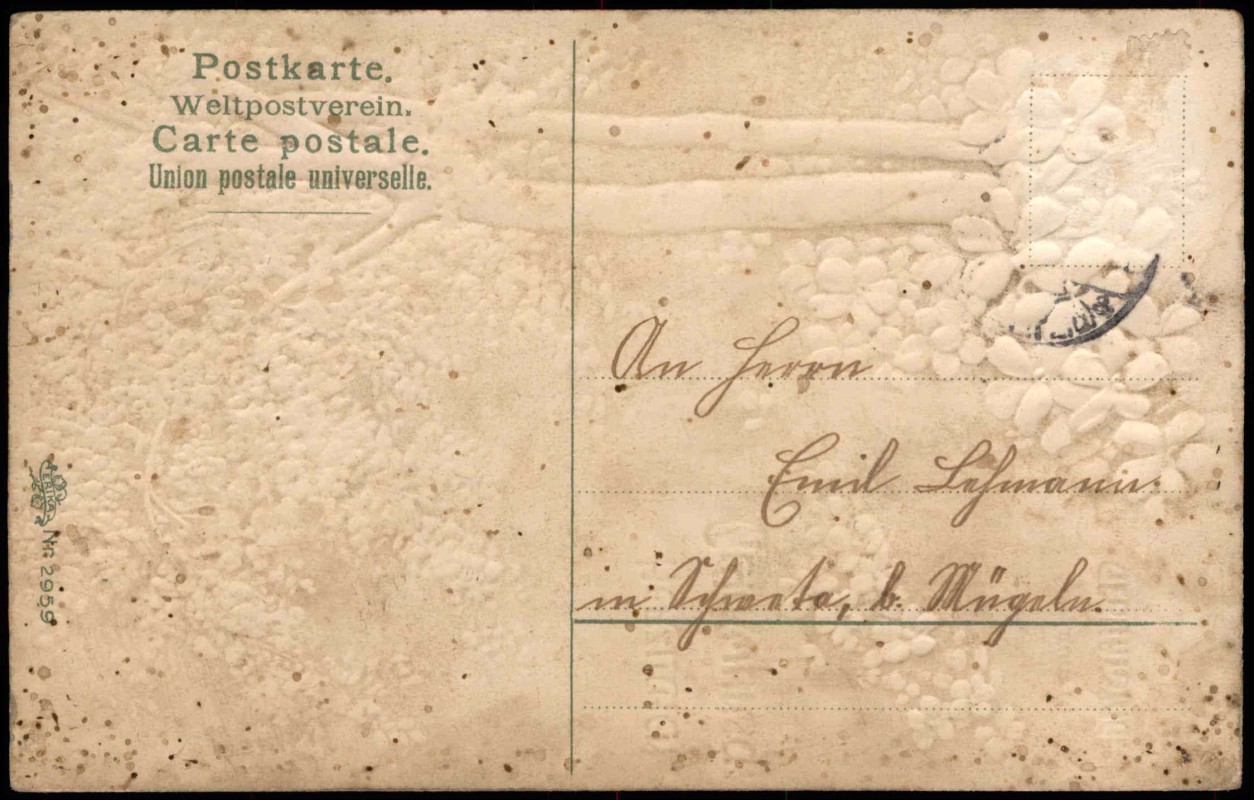 Postkarte.
Weltpostverein.
Carte postale.
Union postale universelle.
ERIKA
Nr. 2959
An Herrn
Emil Lehmann
in Schweta, b. Mügeln.